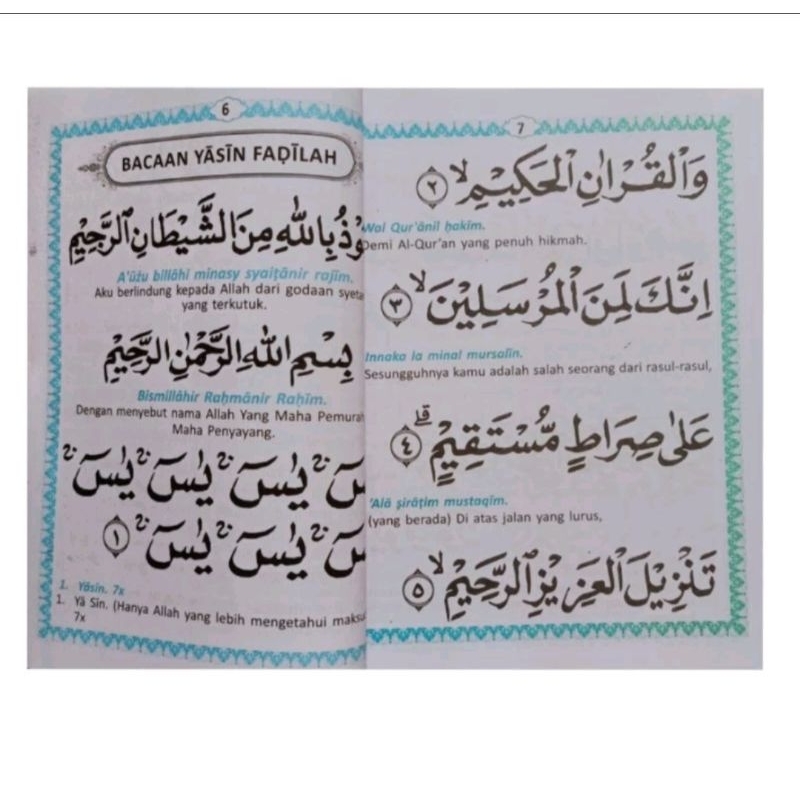 6
BACAAN YĀSĪN FAḌĪLAH
وْذُ بِاللّٰهِ مِنَ الشَّيْطَانِ الرَّجِيْمِ
A'ūżu billāhi minasy syaiṭānir rajīm.
Aku berlindung kepada Allah dari godaan syeta
yang terkutuk.
بِسْمِ اللّٰهِ الرَّحْمٰنِ الرَّحِيْمِ
Bismillāhir Raḥmānir Raḥīm.
Dengan menyebut nama Allah Yang Maha Pemurah
Maha Penyayang.
يٰسۤ يٰسۤ يٰسۤ
يٰسۤ يٰسۤ ١
1. Yāsīn. 7x
1. Yā Sīn. (Hanya Allah yang lebih mengetahui maksu
7x
7
وَالْقُرْاٰنِ الْحَكِيْمِۙ ٢
Wal Qur'ānil ḥakīm.
Demi Al-Qur'an yang penuh hikmah.
اِنَّكَ لَمِنَ الْمُرْسَلِيْنَۙ ٣
Innaka la minal mursalīn.
Sesungguhnya kamu adalah salah seorang dari rasul-rasul,
عَلٰى صِرَاطٍ مُّسْتَقِيْمٍۗ ٤
'Alā ṣirāṭim mustaqīm.
(yang berada) Di atas jalan yang lurus,
تَنْزِيْلَ الْعَزِيْزِ الرَّحِيْمِۙ ٥